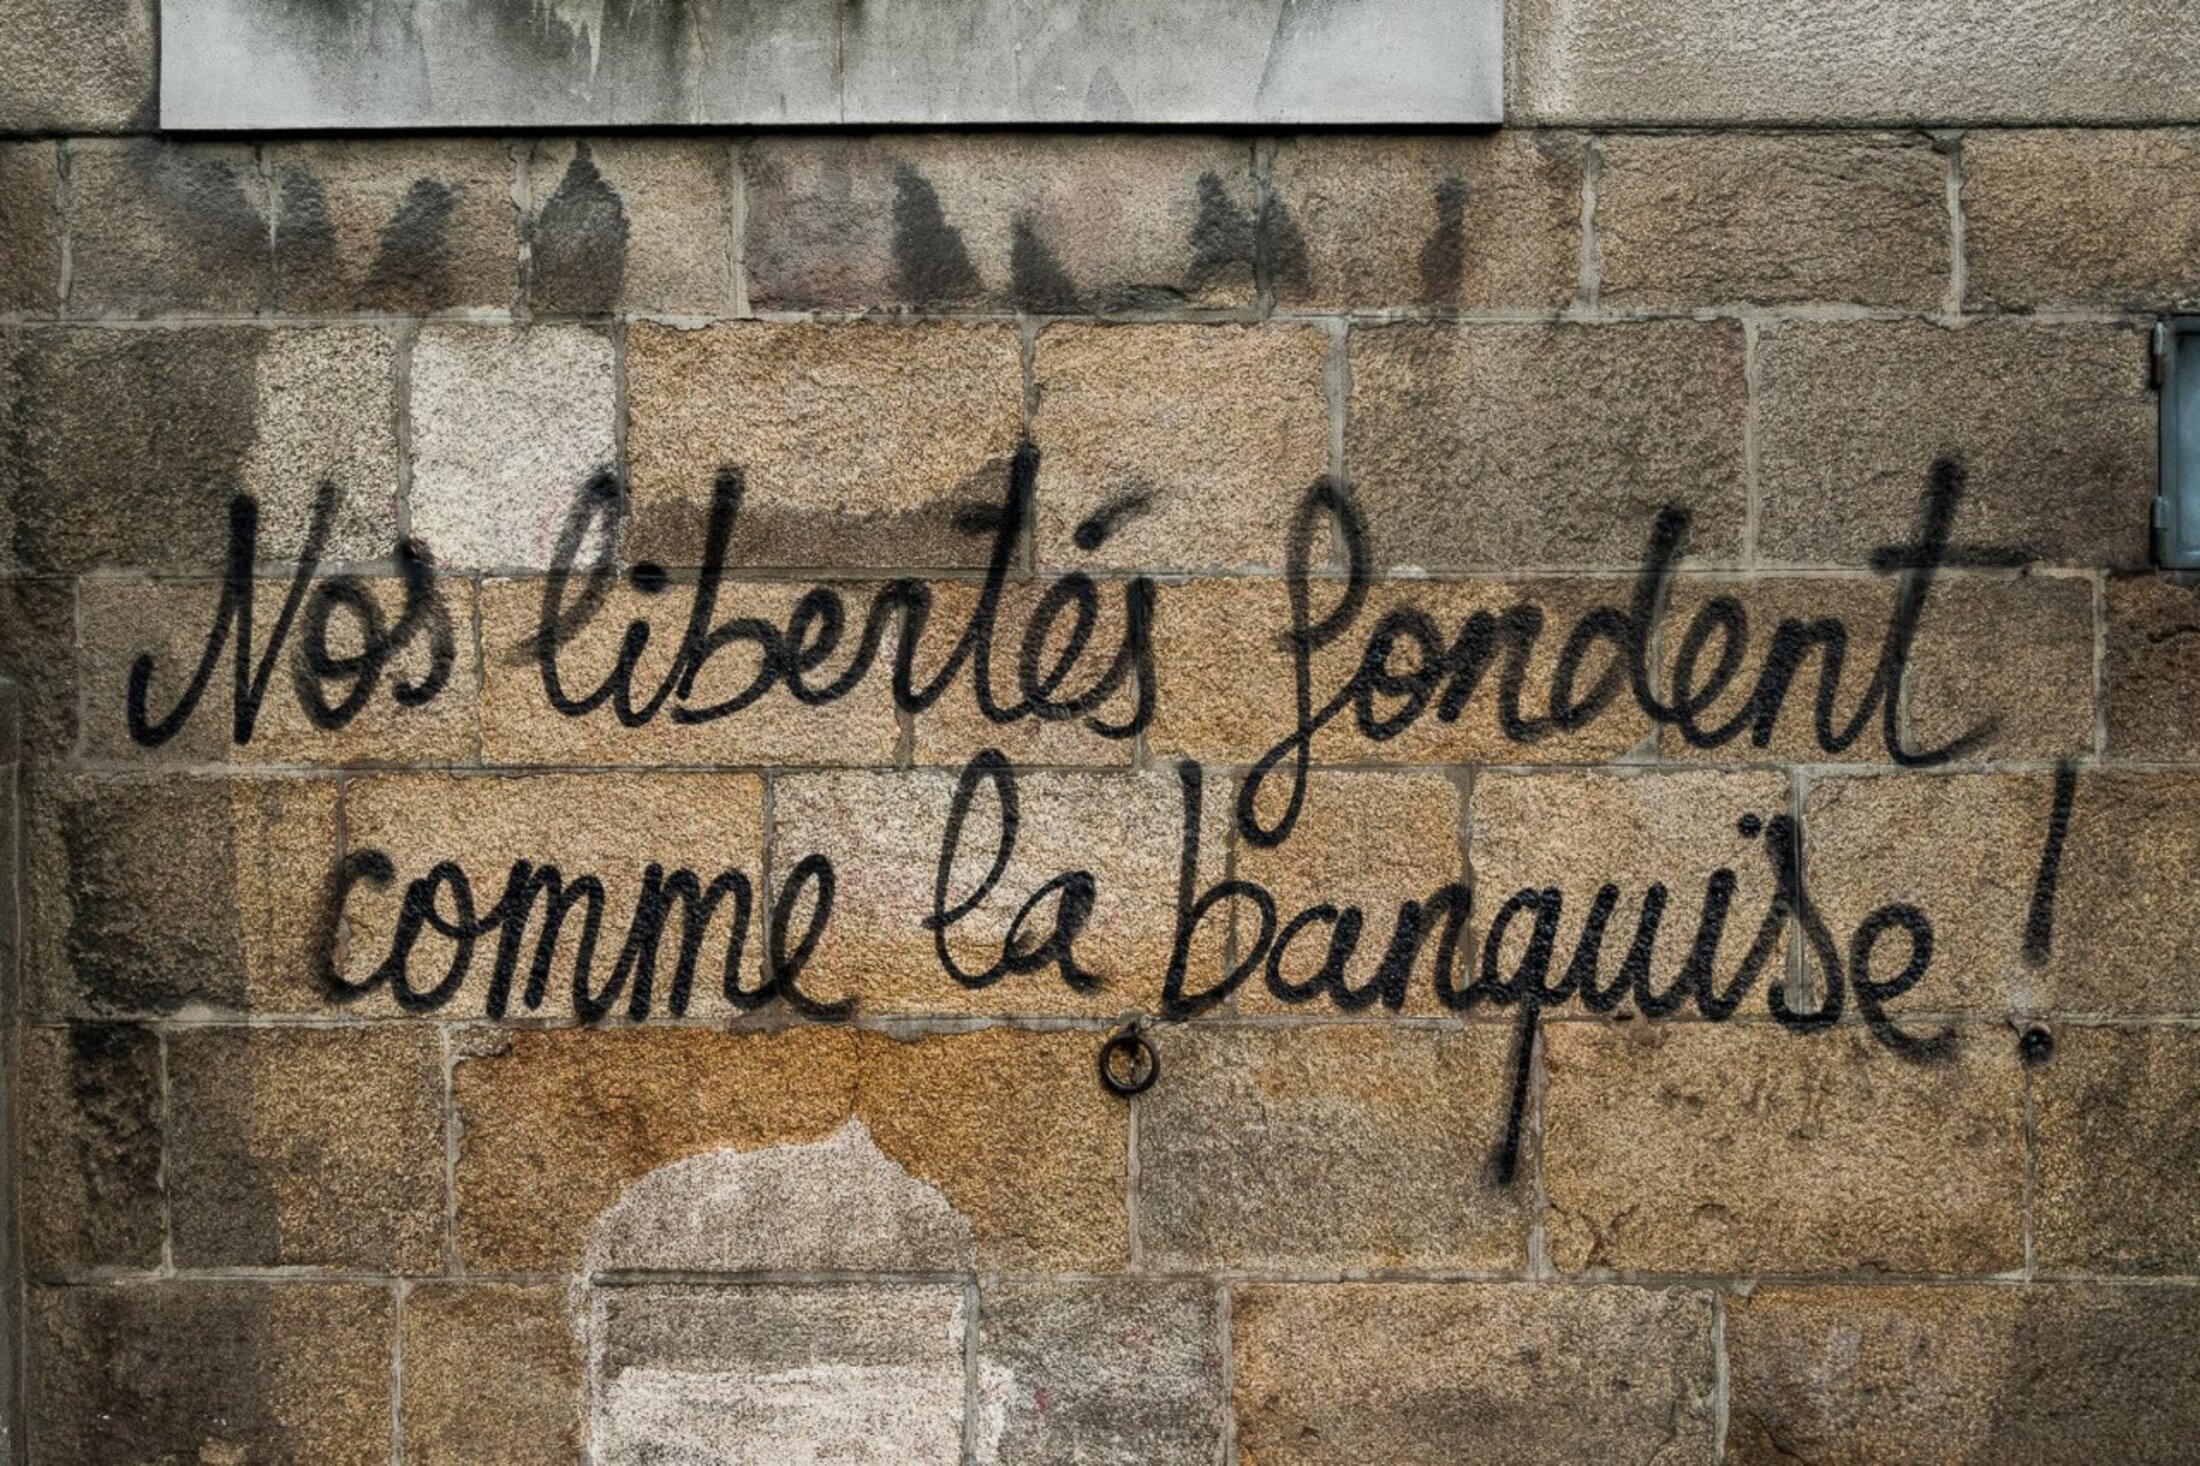 Nos libertés fondent
comme la banquise !